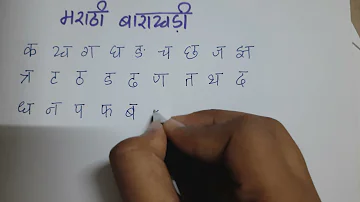 मराठी बाराखडी
क ख ग घ ङ च छ ज झ
त्र ट ठ ड ढ ण त थ द
ध न प फ ब